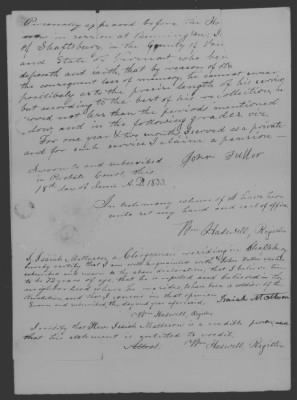 Personally appeared before the
in session at Bennington,
of Shaftsbury, in the County of
and State of Vermont who being
deposeth and saith, that by reason of
the consequent loss of memory, he cannot swear
positively as to the precise length of his service
but according to the best of his recollection, he
served not less than the periods mentioned
below, and in the following grades viz.
For one year & two months I served as a private
and for such service I claim a pension
Sworn to and subscribed
in Probate Court this
18th day of June A.D. 1833.
John Fuller
In testimony whereof I have here
unto set my hand and seal of office
Wm Haswell, Register
I, Isaiah Matteson a Clergyman residing in Shaftsbury
hereby certify that I am well acquainted with John Fuller who
subscribed and sworn to the above declaration, that I believe him
to be 72 years of age, that he is reputed and believed in the
neighborhood where he resides, to have been a soldier of the
Revolution, and that I concur in that opinion
Sworn and subscribed the day and year aforesaid.
Isaiah Matteson
Wm Haswell, Register
I certify that Rev. Isaiah Matteson is a credible person, and
that his statement is entitled to credit.
Attest, Wm Haswell, Register